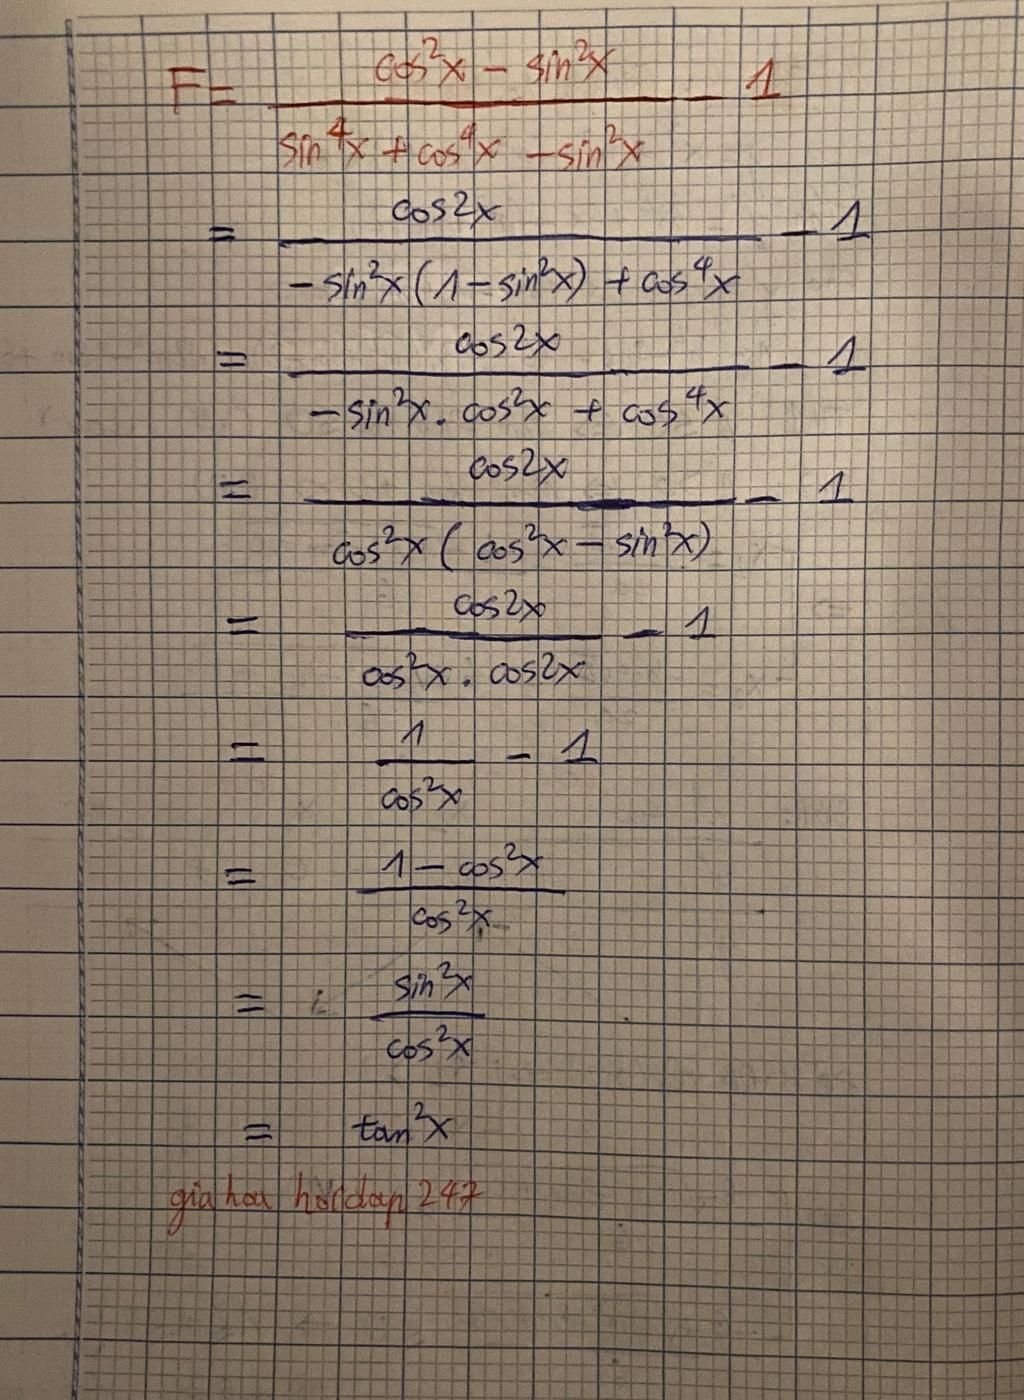 F = (cos²x − sin²x)/(sin⁴x + cos⁴x − sin²x) − 1
= cos2x/(−sin²x(1−sin²x) + cos⁴x) − 1
= cos2x/(−sin²x.cos²x + cos⁴x) − 1
= cos2x/(cos²x(cos²x − sin²x)) − 1
= cos2x/(cos²x.cos2x) − 1
= 1/cos²x − 1
= (1 − cos²x)/cos²x
= sin²x/cos²x
= tan²x
gia hoa hoidap 247